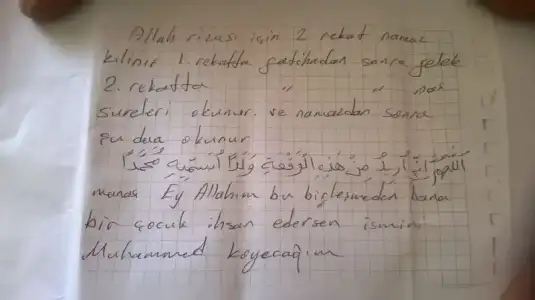 Allah rızası için 2 rekat namaz
kılınır 1. rekatta fatihadan sonra felek
2. rekatta " " nas
sureleri okunur. ve namazdan sonra
şu dua okunur
اللهم إني أريد من هذه الوقعة ولدًا أسميه محمدًا
manası Ey Allahım bu birleşmeden bana
bir çocuk ihsan edersen ismini
Muhammed koyacağım